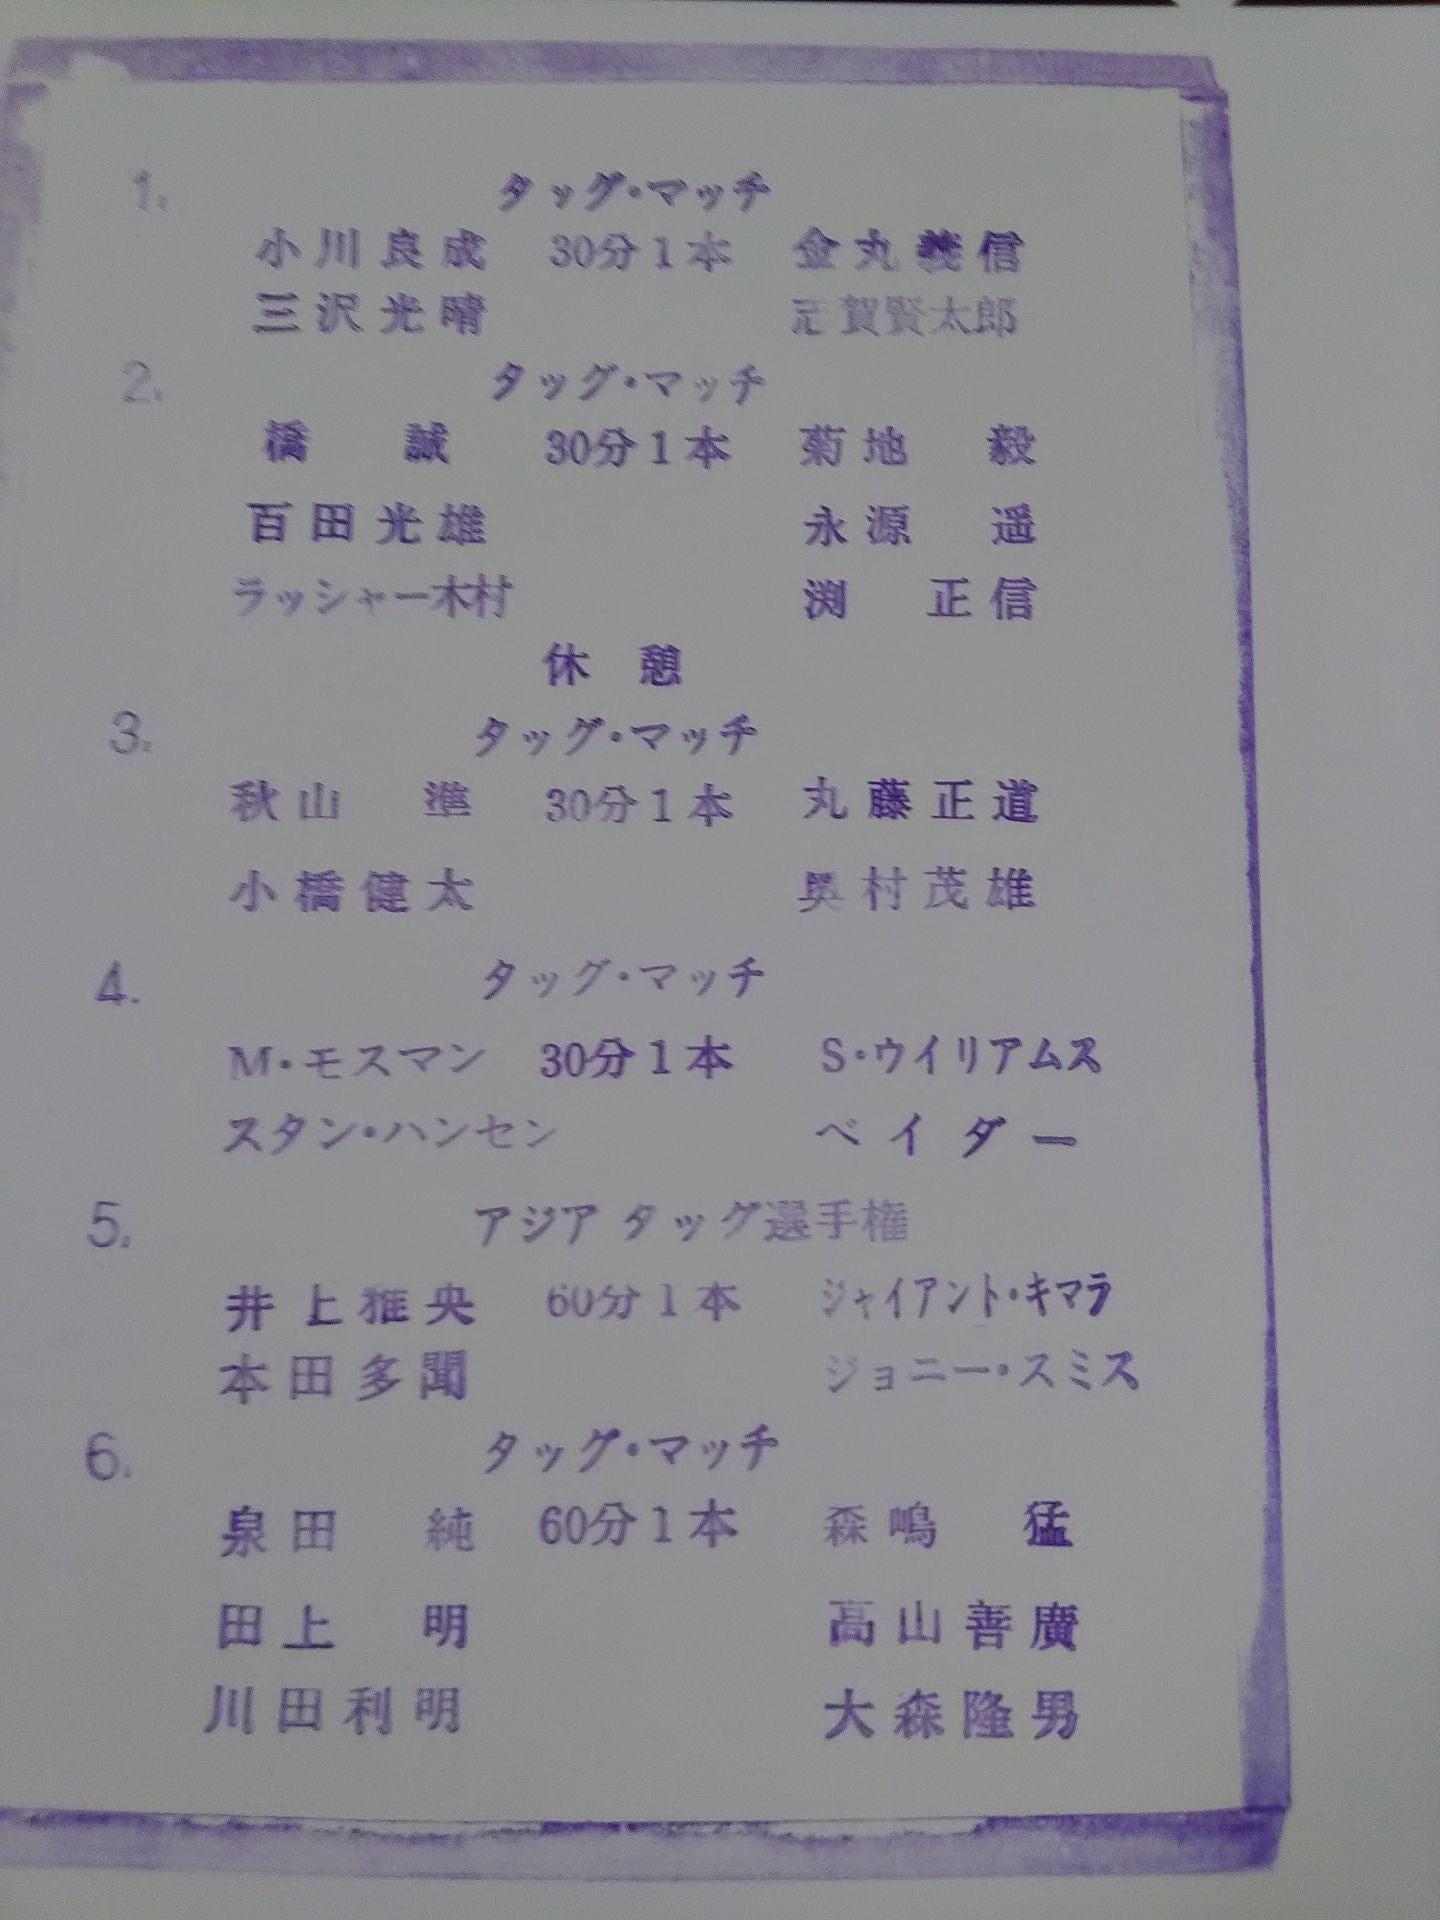 1. タッグ・マッチ
小川良成 30分1本 金丸義信
三沢光晴 志賀賢太郎
2. タッグ・マッチ
橋 誠 30分1本 菊地 毅
百田光雄 永源 遥
ラッシャー木村 渕 正信
休憩
3. タッグ・マッチ
秋山 準 30分1本 丸藤正道
小橋健太 奥村茂雄
4. タッグ・マッチ
M・モスマン 30分1本 S・ウイリアムス
スタン・ハンセン ベイダー
5. アジアタッグ選手権
井上雅央 60分1本 ジャイアント・キマラ
本田多聞 ジョニー・スミス
6. タッグ・マッチ
泉田 純 60分1本 森嶋 猛
田上 明 高山善廣
川田利明 大森隆男